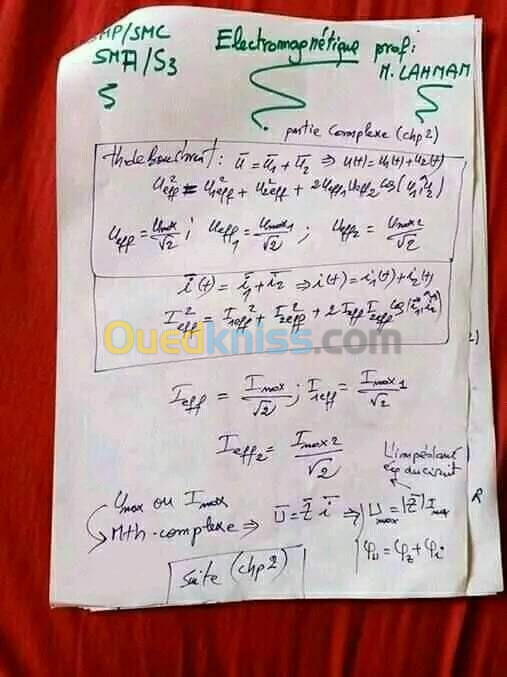 SMP/SMC
SMA/S3
Electromagnétique prof:
M. LAHMAM
partie complexe (chp2)
ū = ū₁ + ū₂ ⇒ u(t) = u₁(t) + u₂(t)
U²eff = U²₁eff + U²₂eff + 2Ueff₁Ueff₂ cos(u₁,u₂)
Ueff = Umax/√2 ; Ueff₁ = Umax₁/√2 ; Ueff₂ = Umax₂/√2
ī(t) = ī₁ + ī₂ ⇒ i(t) = i₁(t) + i₂(t)
I²eff = I₁eff² + I²₂eff + 2 I₁eff I₂eff cos(i₁,i₂)
Ouedkniss.com
Ieff = Imax/√2 ; I₁eff = Imax₁/√2
Ieff₂ = Imax₂/√2
L'impédance
éq du circuit
Umax ou Imax
Mth-complexe ⇒ Ū = Z̄ ī ⇒ Umax = |Z̄| Imax
φu = φz + φi
suite (chp2)